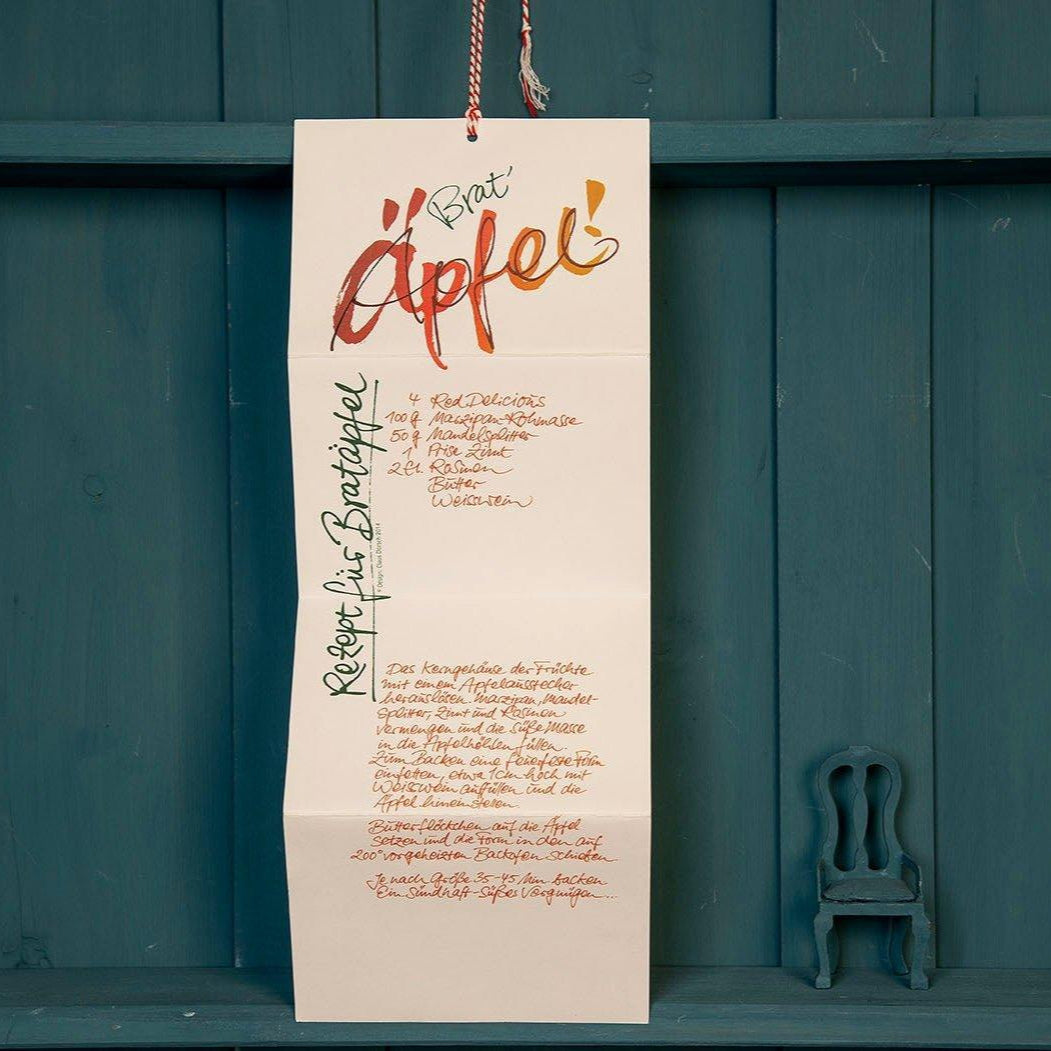 Brat'
Äpfel!
Rezept für Bratäpfel
© Design: Claus Dorsch 2014
4 Red Delicious
100 g Marzipan-Rohmasse
50 g Mandelsplitter
1 Prise Zimt
2 El. Rosinen
Butter
Weisswein
Das Kerngehäuse der Früchte
mit einem Apfelausstecher
herauslösen. Marzipan, Mandel-
splitter, Zimt und Rosinen
vermengen und die süße Masse
in die Apfelhöhlen füllen.
Zum Backen eine feuerfeste Form
einfetten, etwa 1cm hoch mit
Weisswein auffüllen und die
Äpfel hineinstellen.
Butterflöckchen auf die Äpfel
setzen und die Form in den auf
200° vorgeheizten Backofen schieben.
Je nach Größe 35-45 Min backen
Ein sündhaft-süßes Vergnügen...